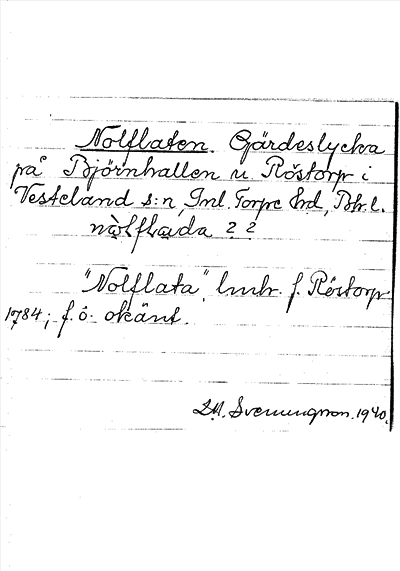 Nolflaten. Gärdeslycka
på Björnhallen u. Röstorp i
Vesteland s:n, Inl. Torpe hd, Boh. l.
nòlflada ? ?
"Nolflata", lmh. f. Röstorp
1784; f. ö. okänt.
Svenungsson. 1940.